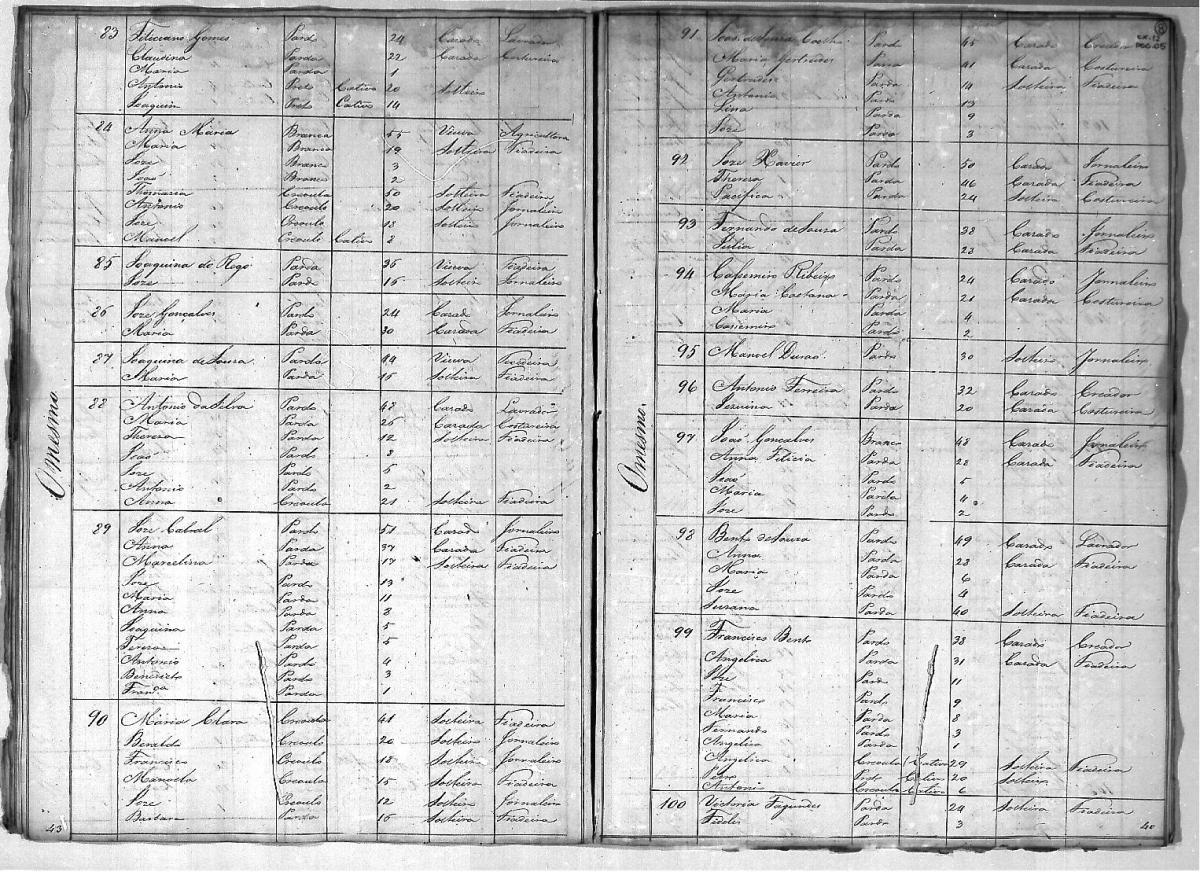 83 Feliciano Gomes Pardo 24 Cazado Lavrador
Claudina Parda 22 Cazada Costureira
Maria Parda 1
Antonio Preto Cativo 20 Solteiro
Joaquim Preto Cativo 14
84 Anna Maria Branca 55 Viuva Agricultora
Maria Branca 19 Solteira Fiadeira
Joze Branco 3
João Branco 2
Thomazia Creoula 50 Solteira Fiadeira
Antonio Creoulo 20 Solteiro Jornaleiro
Joze Creoulo 18 Solteiro Jornaleiro
Manoel Creoulo Cativo 2
85 Joaquina do Rego Parda 35 Viuva Fiadeira
Joze Pardo 16 Solteiro Jornaleiro
86 Joze Gonçalves Pardo 24 Cazado Jornaleiro
Maria Parda 30 Cazada Fiadeira
87 Joaquina de Souza Parda 44 Viuva Fiadeira
Maria Parda 15 Solteira Fiadeira
Omesmo
88 Antonio da Silva Pardo 48 Cazado Lavrador
Maria Parda 26 Cazada Costureira
Thereza Parda 12 Solteira Fiadeira
João Pardo 8
Joze Pardo 5
Antonio Pardo 2
Anna Creoula 21 Solteira Fiadeira
89 Joze Cabral Pardo 51 Cazado Jornaleiro
Anna Parda 37 Cazada Fiadeira
Marcelina Parda 17 Solteira Fiadeira
Joze Pardo 13
Maria Parda 11
Anna Parda 8
Joaquina Parda 5
Tereza Parda 5
Antonio Pardo 4
Benedicto Pardo 3
Franca Parda 1
90 Maria Clara Creoula 41 Solteira Fiadeira
Beraldo Creoulo 20 Solteiro Jornaleiro
Francisco Creoulo 18 Solteiro Jornaleiro
Manoela Creoula 15 Solteira Fiadeira
Joze Creoulo 12 Solteiro Jornaleiro
Barbara Parda 16 Solteira Fiadeira
43
91 Joao de Souza Coelho Pardo 45 Cazado Creador
Maria Gertrudes Parda 41 Cazada Costureira
Gertrudes Parda 14 Solteira Fiadeira
Antonio Pardo 13
Lina Parda 9
Joze Pardo 3
92 Joze Xavier Pardo 50 Cazado Jornaleiro
Thereza Parda 46 Cazada Fiadeira
Pacifica Parda 24 Solteira Costureira
93 Fernando de Souza Pardo 38 Cazado Jornaleiro
Julia Parda 23 Cazada Fiadeira
94 Casemiro Ribeiro Pardo 24 Cazado Jornaleiro
Maria Caetana Parda 21 Cazada Costureira
Maria Parda 4
Casemiro Pardo 2
95 Manoel Durão Pardo 30 Solteiro Jornaleiro
96 Antonio Ferreira Pardo 32 Cazado Creador
Jezuina Parda 20 Cazada Costureira
Omesmo
97 João Gonçalves Branco 48 Cazado Jornaleiro
Anna Felicia Parda 28 Cazada Fiadeira
João Pardo 5
Maria Parda 4
Joze Pardo 2
98 Bento de Souza Pardo 49 Cazado Lavrador
Anna Parda 23 Cazada Fiadeira
Maria Parda 6
Joze Pardo 4
Suzana Parda 40 Solteira Fiadeira
99 Francisco Bento Pardo 38 Cazado Creador
Angelica Parda 31 Cazada Fiadeira
Joze Pardo 11
Francisco Pardo 9
Maria Parda 8
Fernando Pardo 3
Angelica Parda 1
Angelica Creoula Cativa 29 Solteira Fiadeira
Pedro Preto Cativo 20 Solteiro
Antonio Creoulo Cativo 6
100 Victoria Fagundes Parda 24 Solteira Fiadeira
Fidelis Pardo 3
40